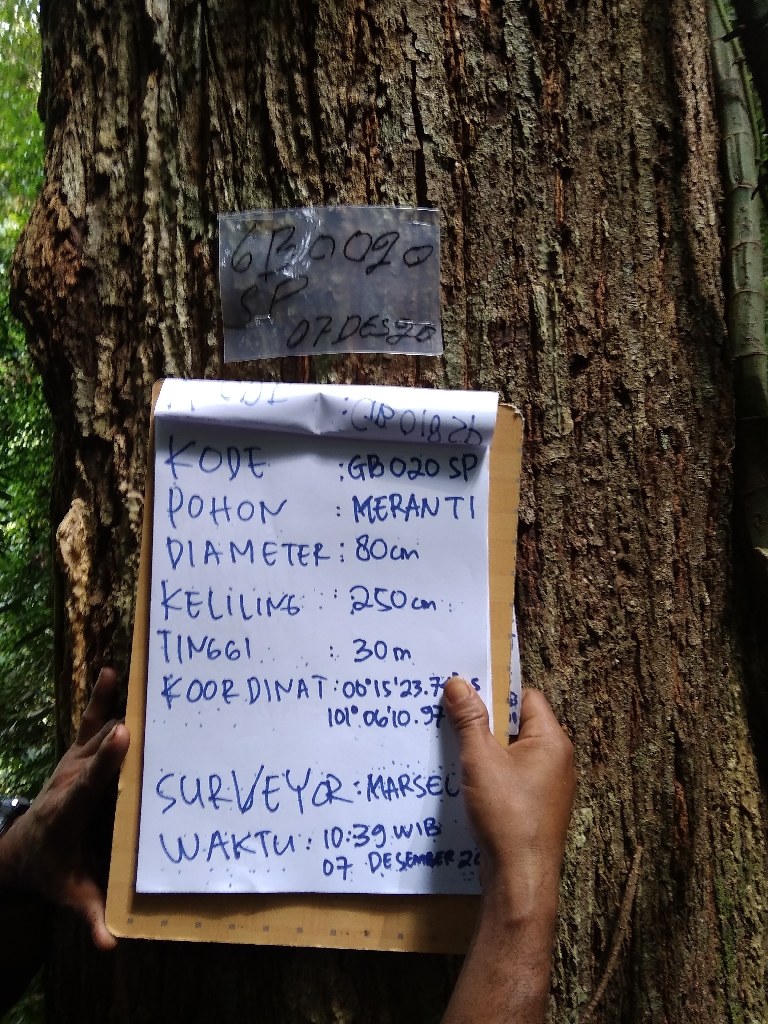 GB0020
SP
07 DES 20
KODE : GB020 SP
POHON : MERANTI
DIAMETER : 80cm
KELILING : 250cm
TINGGI : 30m
KOORDINAT : 00°15'23.7
101°06'10.97
SURVEYOR : MARSEL
WAKTU : 10:39 WIB
07 DESEMBER 20